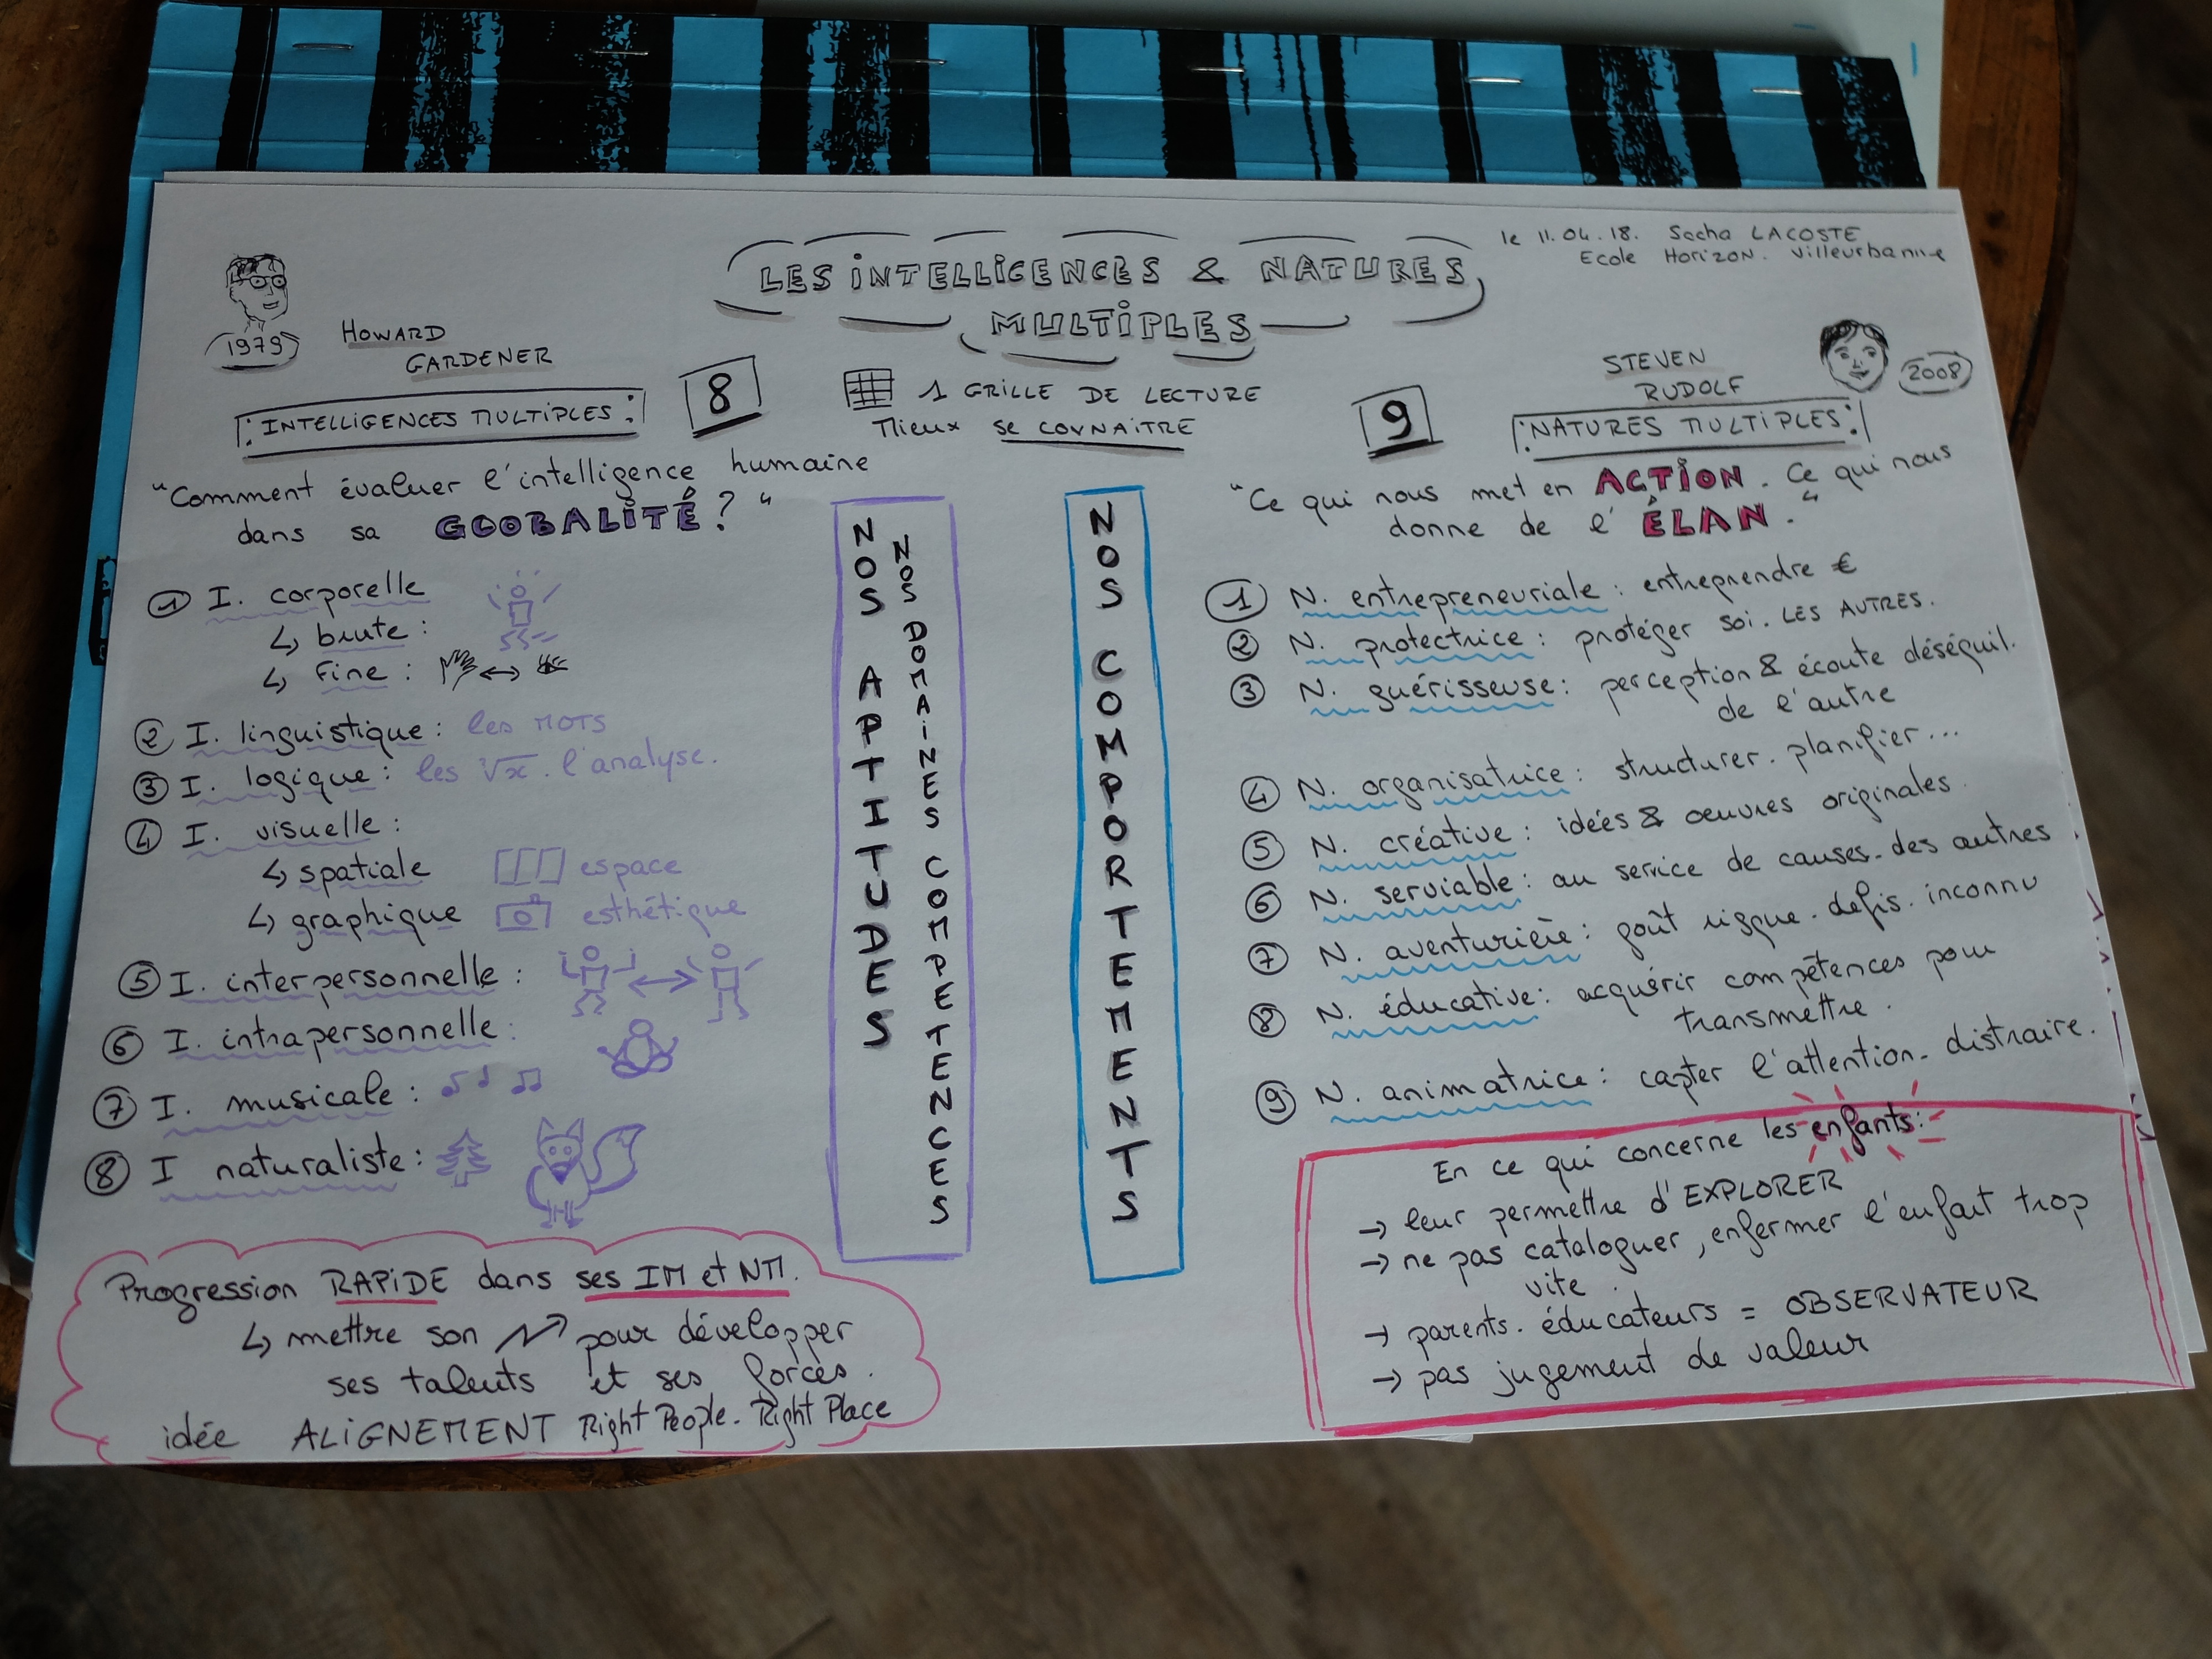 le 11.04.18. Sacha LACOSTE
Ecole Horizon. Villeurbanne
LES INTELLIGENCES & NATURES
MULTIPLES
1979
HOWARD
GARDENER
INTELLIGENCES MULTIPLES:
8
1 GRILLE DE LECTURE
Mieux SE CONNAITRE
9
STEVEN
RUDOLF
2008
NATURES MULTIPLES:
"Comment évaluer l'intelligence humaine
dans sa GLOBALITÉ ? "
① I. corporelle
↳ brute :
↳ Fine :
② I. linguistique : les MOTS
③ I. logique : les √x. l'analyse.
④ I. visuelle :
↳ spatiale espace
↳ graphique esthétique
⑤ I. interpersonnelle :
⑥ I. intrapersonnelle :
⑦ I. musicale :
⑧ I naturaliste :
NOS APTITUDES
NOS DOMAINES COMPETENCES
NOS COMPORTEMENTS
"Ce qui nous met en ACTION. Ce qui nous
donne de l'ÉLAN."
① N. entrepreneuriale : entreprendre €
② N. protectrice : protéger soi. LES AUTRES.
③ N. guérisseuse : perception & écoute déséquil.
de l'autre
④ N. organisatrice : structurer. planifier...
⑤ N. créative : idées & oeuvres originales.
⑥ N. serviable : au service de causes. des autres
⑦ N. aventurière : goût risque. défis. inconnu
⑧ N. éducative : acquérir compétences pour
transmettre.
⑨ N. animatrice : capter l'attention. distraire.
Progression RAPIDE dans ses IM et NM.
↳ mettre son pour développer
ses talents et ses forces.
idée ALIGNEMENT Right People. Right Place
En ce qui concerne les enfants :
→ leur permettre d'EXPLORER
→ ne pas cataloguer, enfermer l'enfant trop
vite.
→ parents. éducateurs = OBSERVATEUR
→ pas jugement de valeur